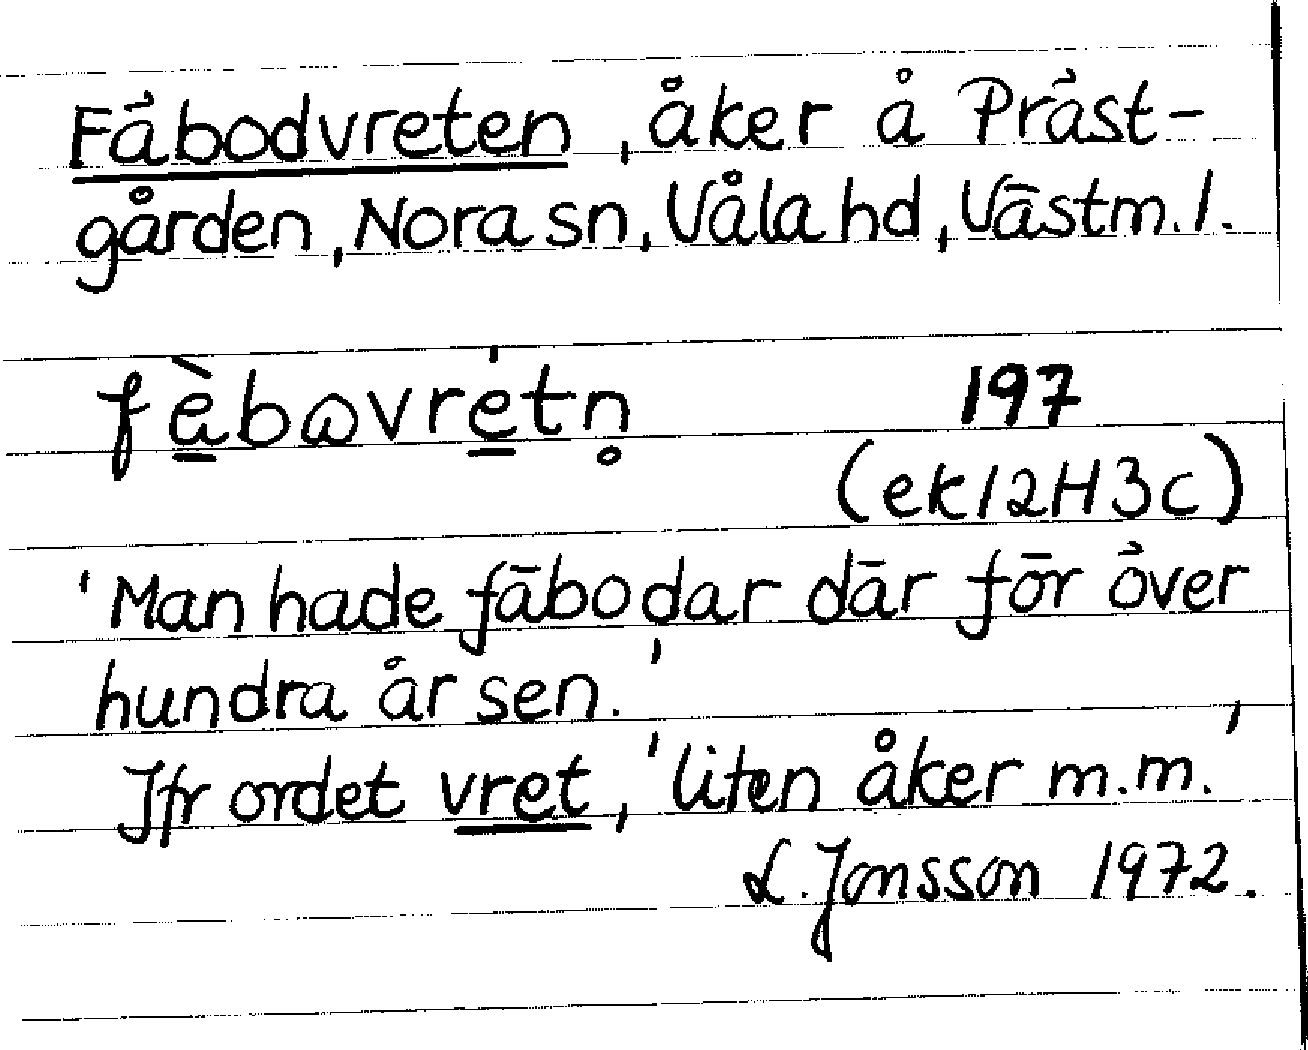 Fäbodvreten, åker å Präst-
gården, Nora sn, Våla hd, Västm. l.
fàbωvrétn̥ 197
(ek 12H3c)
'Man hade fäbodar där för över
hundra år sen.'
Jfr ordet vret, 'liten åker m.m.'
L. Jonsson 1972.